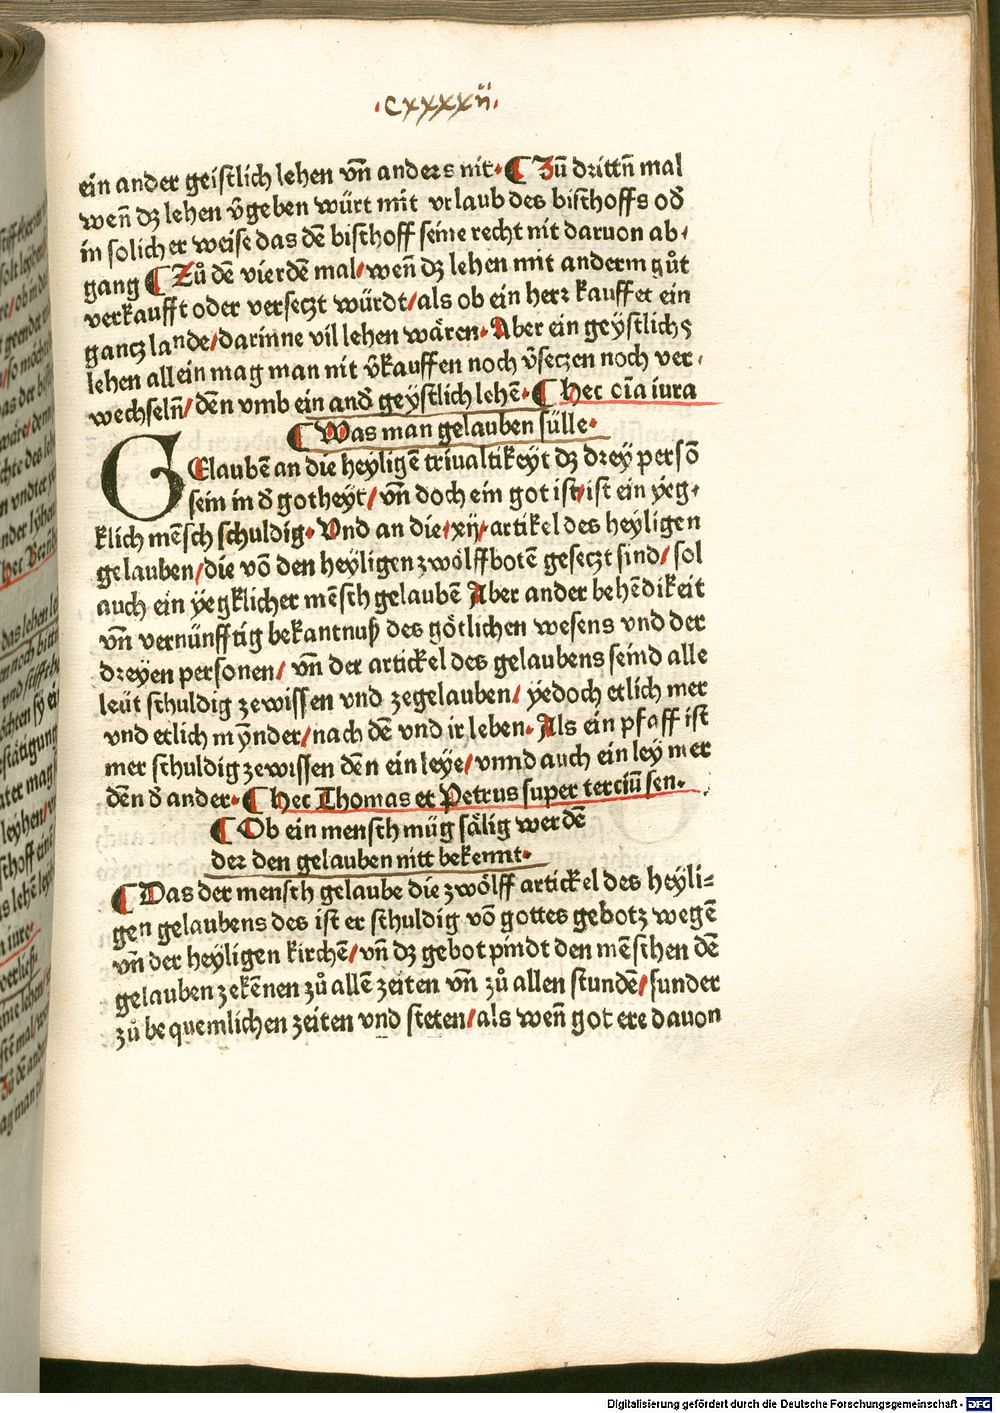 ·cxxxxii·
ein ander geistlich lehen vn̄ anders nit· ¶ Zů drittn̄ mal
wen̄ dz lehen v̄geben würt mit vrlaub des bischoffs od̄
in solicher weise das dē bischoff seine recht nit daruon ab·
gang ¶ Zů dē vierdē mal/ wen̄ dz lehen mit anderm gůt
verkaufft oder versetzt würdt/ als ob ein herꝛ kauffet ein
gantz lande/ darinne vil lehen wären· Aber ein geystlichs
lehen allein mag man nit v̄kauffen noch v̄setzen noch ver·
wechseln̄/ dēn vmb ein and̄ geystlich lehē· ¶ Hec oīa iura
¶ Was man gelauben sülle·
GElaubē an die heyligē triualtikeyt dz drey persō
sein in d̄ gotheyt/ vn̄ doch ein got ist/ ist ein yeg·
klich mēsch schuldig· Vnd an die/ xij/ artikel des heyligen
gelauben/ die vō den heyligen zwölffbotē gesetzt sind/ sol
auch ein yegklicher mēsch gelaubē Aber ander behēdikeit
vn̄ vernünfftig bekantnuß des götlichen wesens vnd der
dreyen personen/ vn̄ der artickel des gelaubens seind alle
leüt schuldig zewissen vnd zegelauben/ yedoch etlich mer
vnd etlich mynder/ nach dē vnd ir leben· Als ein pfaff ist
mer schuldig zewissen dēn ein leye/ vnnd auch ein ley mer
dēn d̄ ander· ¶ Hec Thomas et Petrus super terciū sen·
¶ Ob ein mensch müg sälig werdē
der den gelauben nitt bekennt·
¶ Das der mensch gelaube die zwölff artickel des heyli⸗
gen gelaubens des ist er schuldig vō gottes gebotz wegē
vn̄ der heyligen kirchē/ vn̄ dz gebot pindt den mēschen dē
gelauben zekēnen zů allē zeiten vn̄ zů allen stundē/ sunder
zů bequemlichen zeiten vnd steten/ als wen̄ got ere dauon
Digitalisierung gefördert durch die Deutsche Forschungsgemeinschaft - DFG